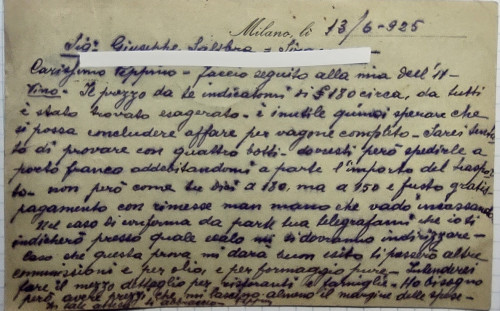 Milano, li 13/6-925
Sigr Giuseppe
Carissimo Peppino - faccio seguito alla mia dell'11-
Vino - Il prezzo da te indicatomi di $ 180 circa, da tutti
è stato trovato esagerato - è inutile quindi sperare che
si possa concludere affare per vagone completo - Sarei
di provare con quattro botti - dovresti però spedirle a
porto franco addebitandomi a parte l'importo del
to - non però come tu dici a 180, ma a 150 e fusto gratis
pagamento con rimesse man mano che vado incassando
Nel caso di conforma da parte tua telegrafami che io ti
indicherò presso quale scalo mi si dovranno indirizzare -
caso che questa prova mi darà buon esito ti passerò altre
commissioni e per olio, e per formaggio pure - Intenderei
fare il mezzo dettaglio per ristoranti e famiglie - Ho bisogno
però avere prezzi che mi lascino almeno il margine delle spese -